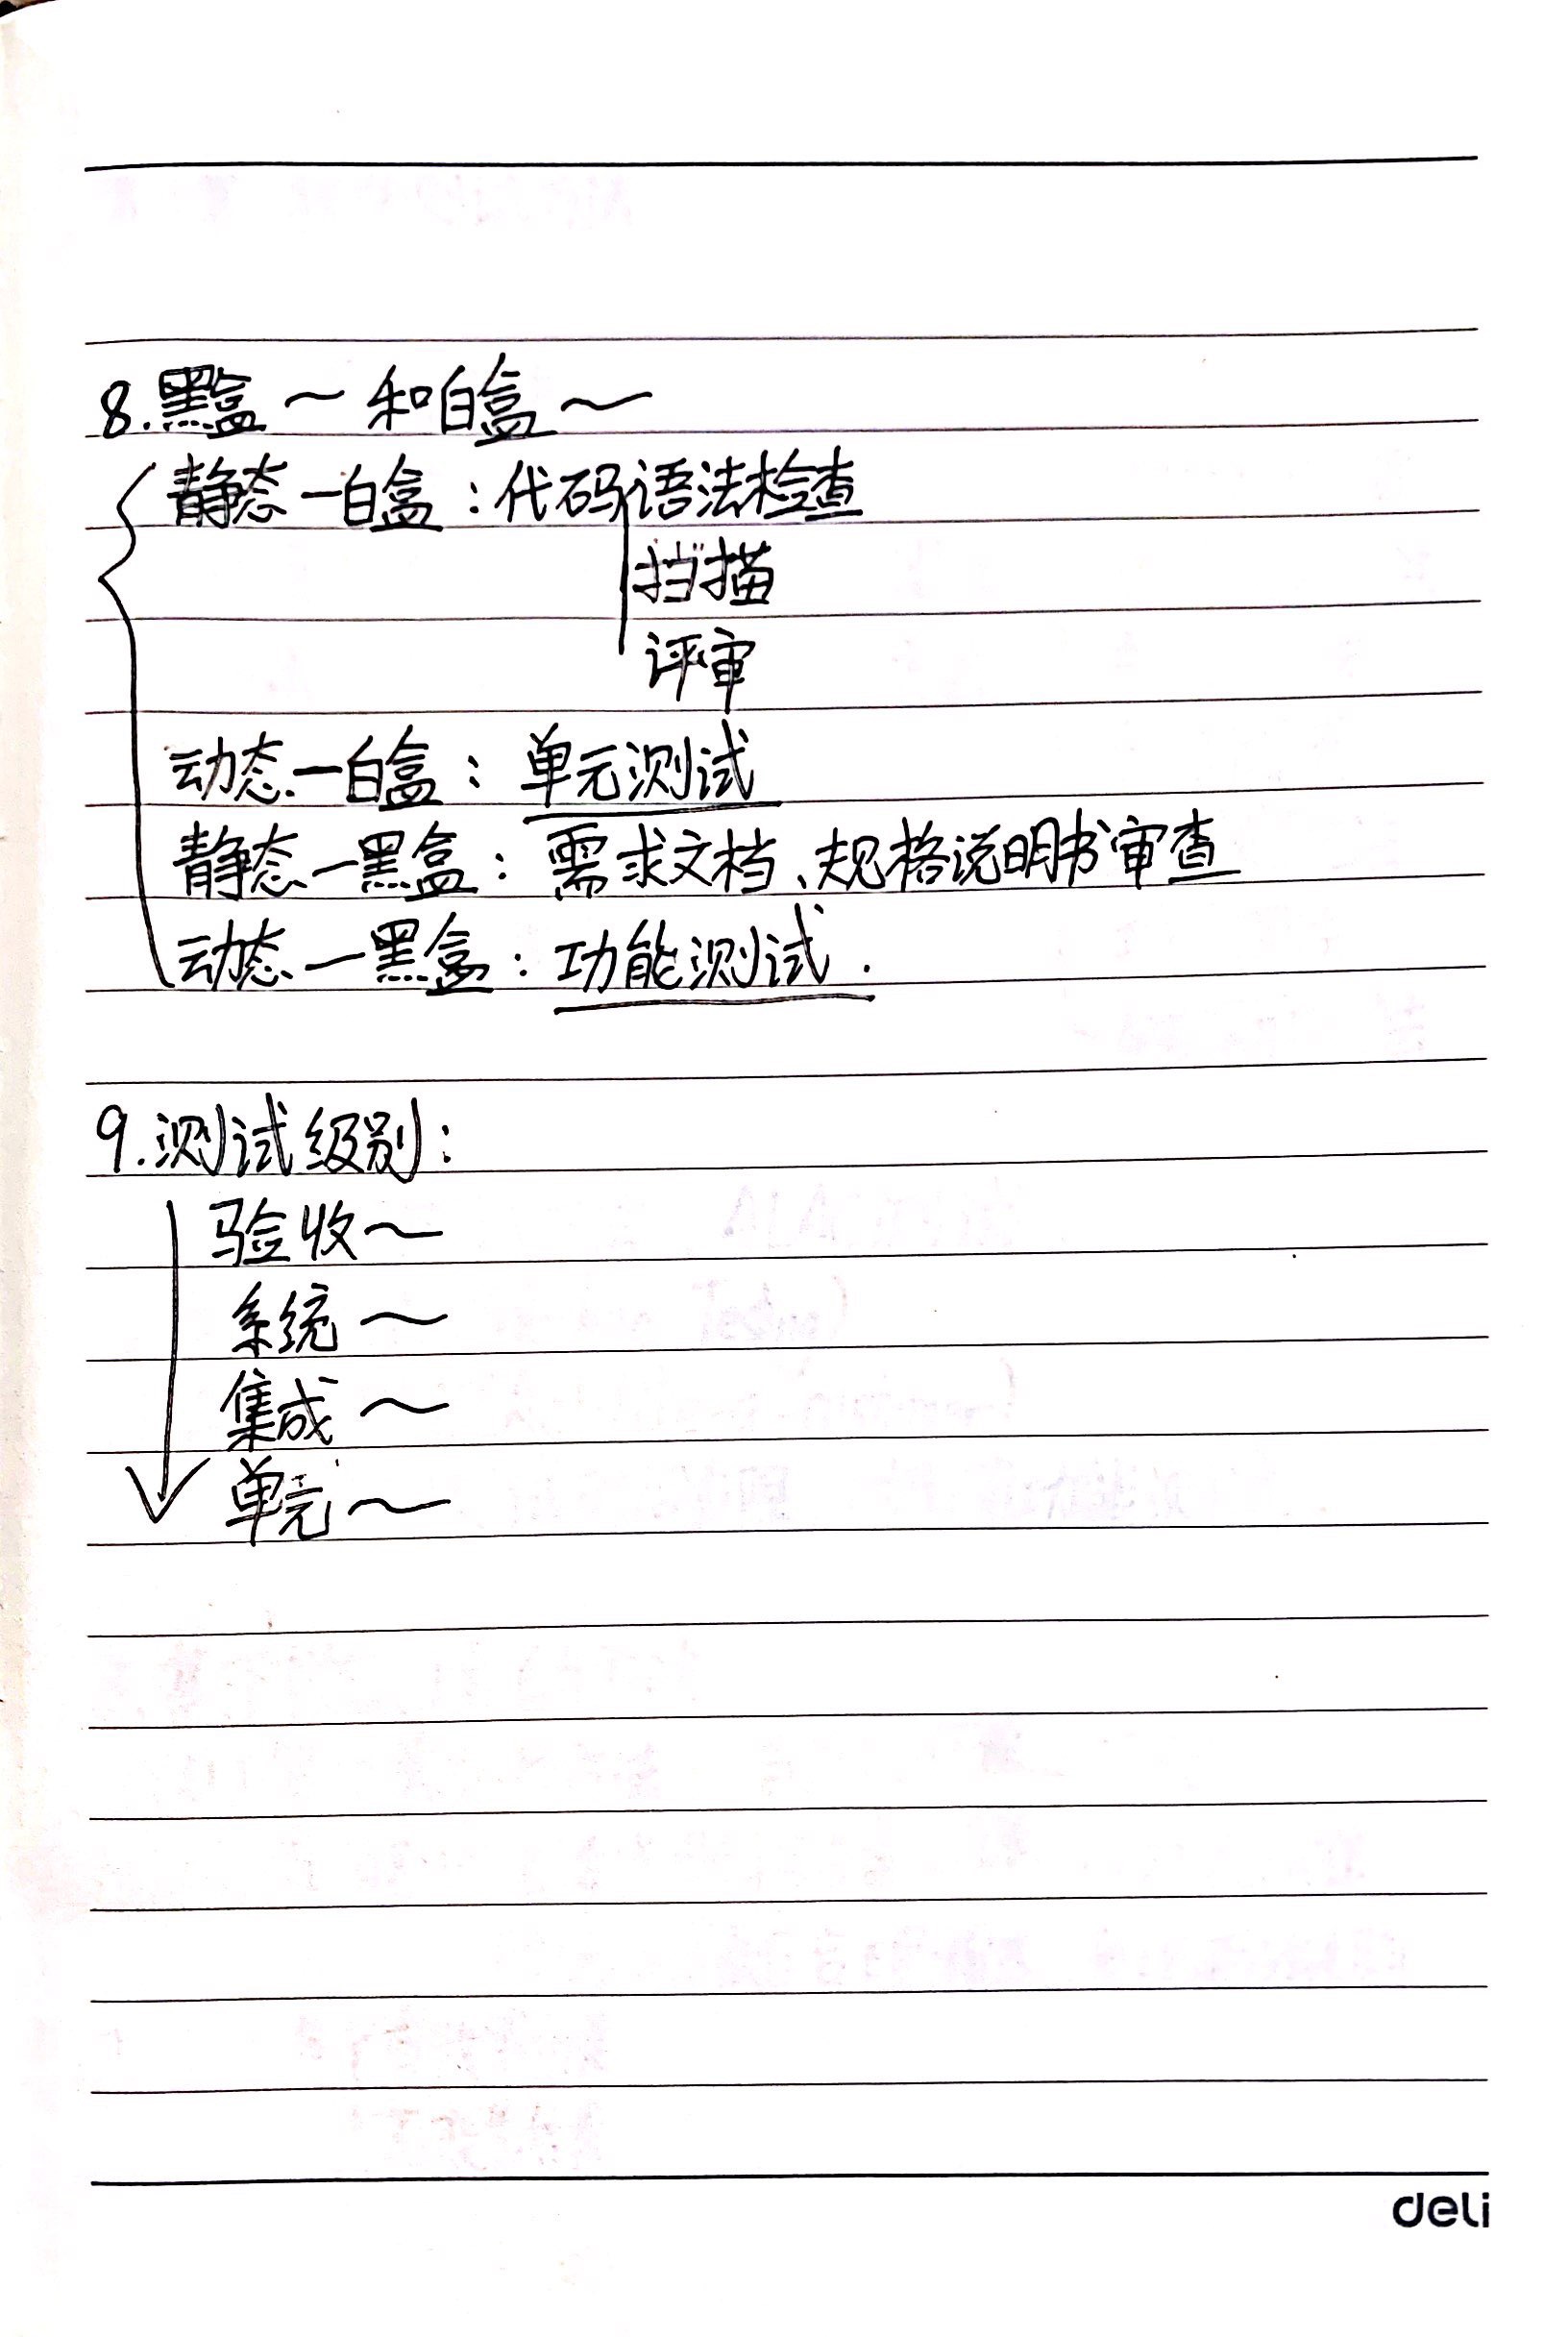 8.黑盒～和白盒～
静态—白盒：代码语法检查
扫描
评审
动态—白盒：单元测试
静态—黑盒：需求文档、规格说明书审查
动态—黑盒：功能测试.
9.测试级别：
验收～
系统～
集成～
单元～
deli